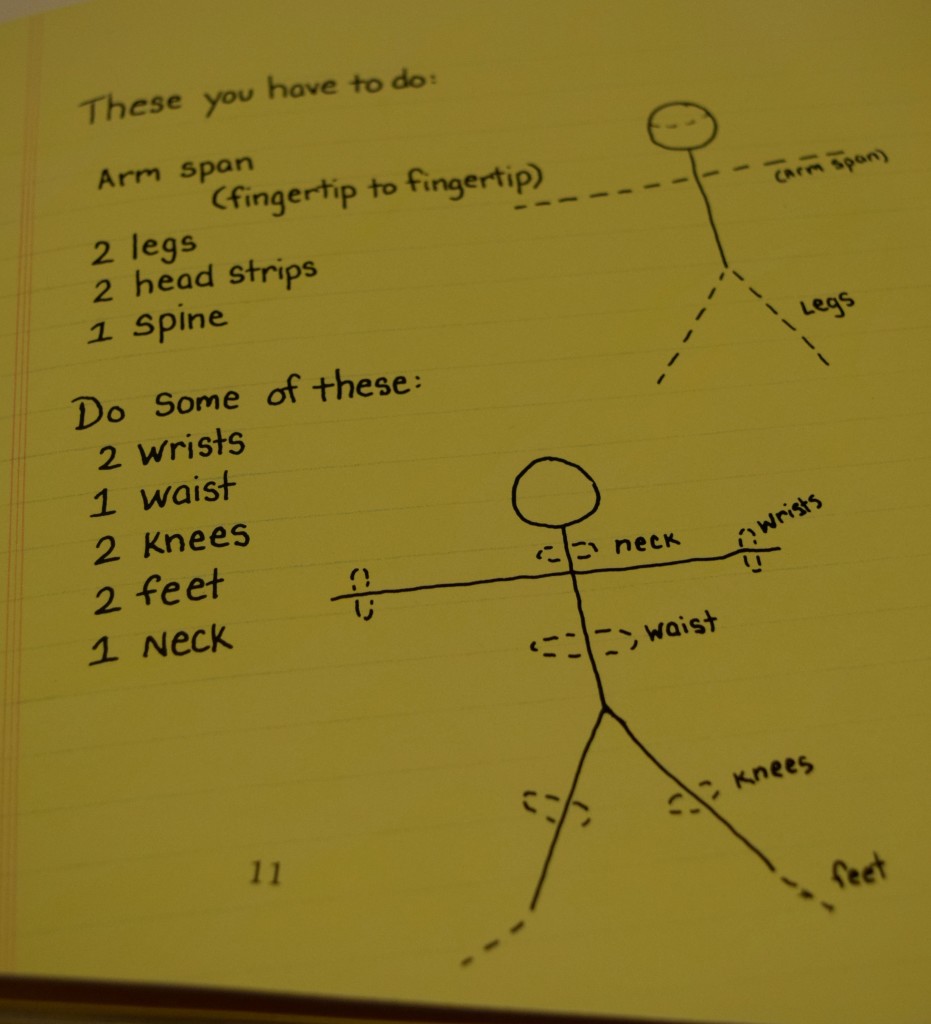 These you have to do:
Arm span
(fingertip to fingertip)
2 legs
2 head strips
1 spine
(Arm span)
Legs
Do Some of these:
2 wrists
1 waist
2 Knees
2 feet
1 Neck
wrists
neck
waist
Knees
feet
11